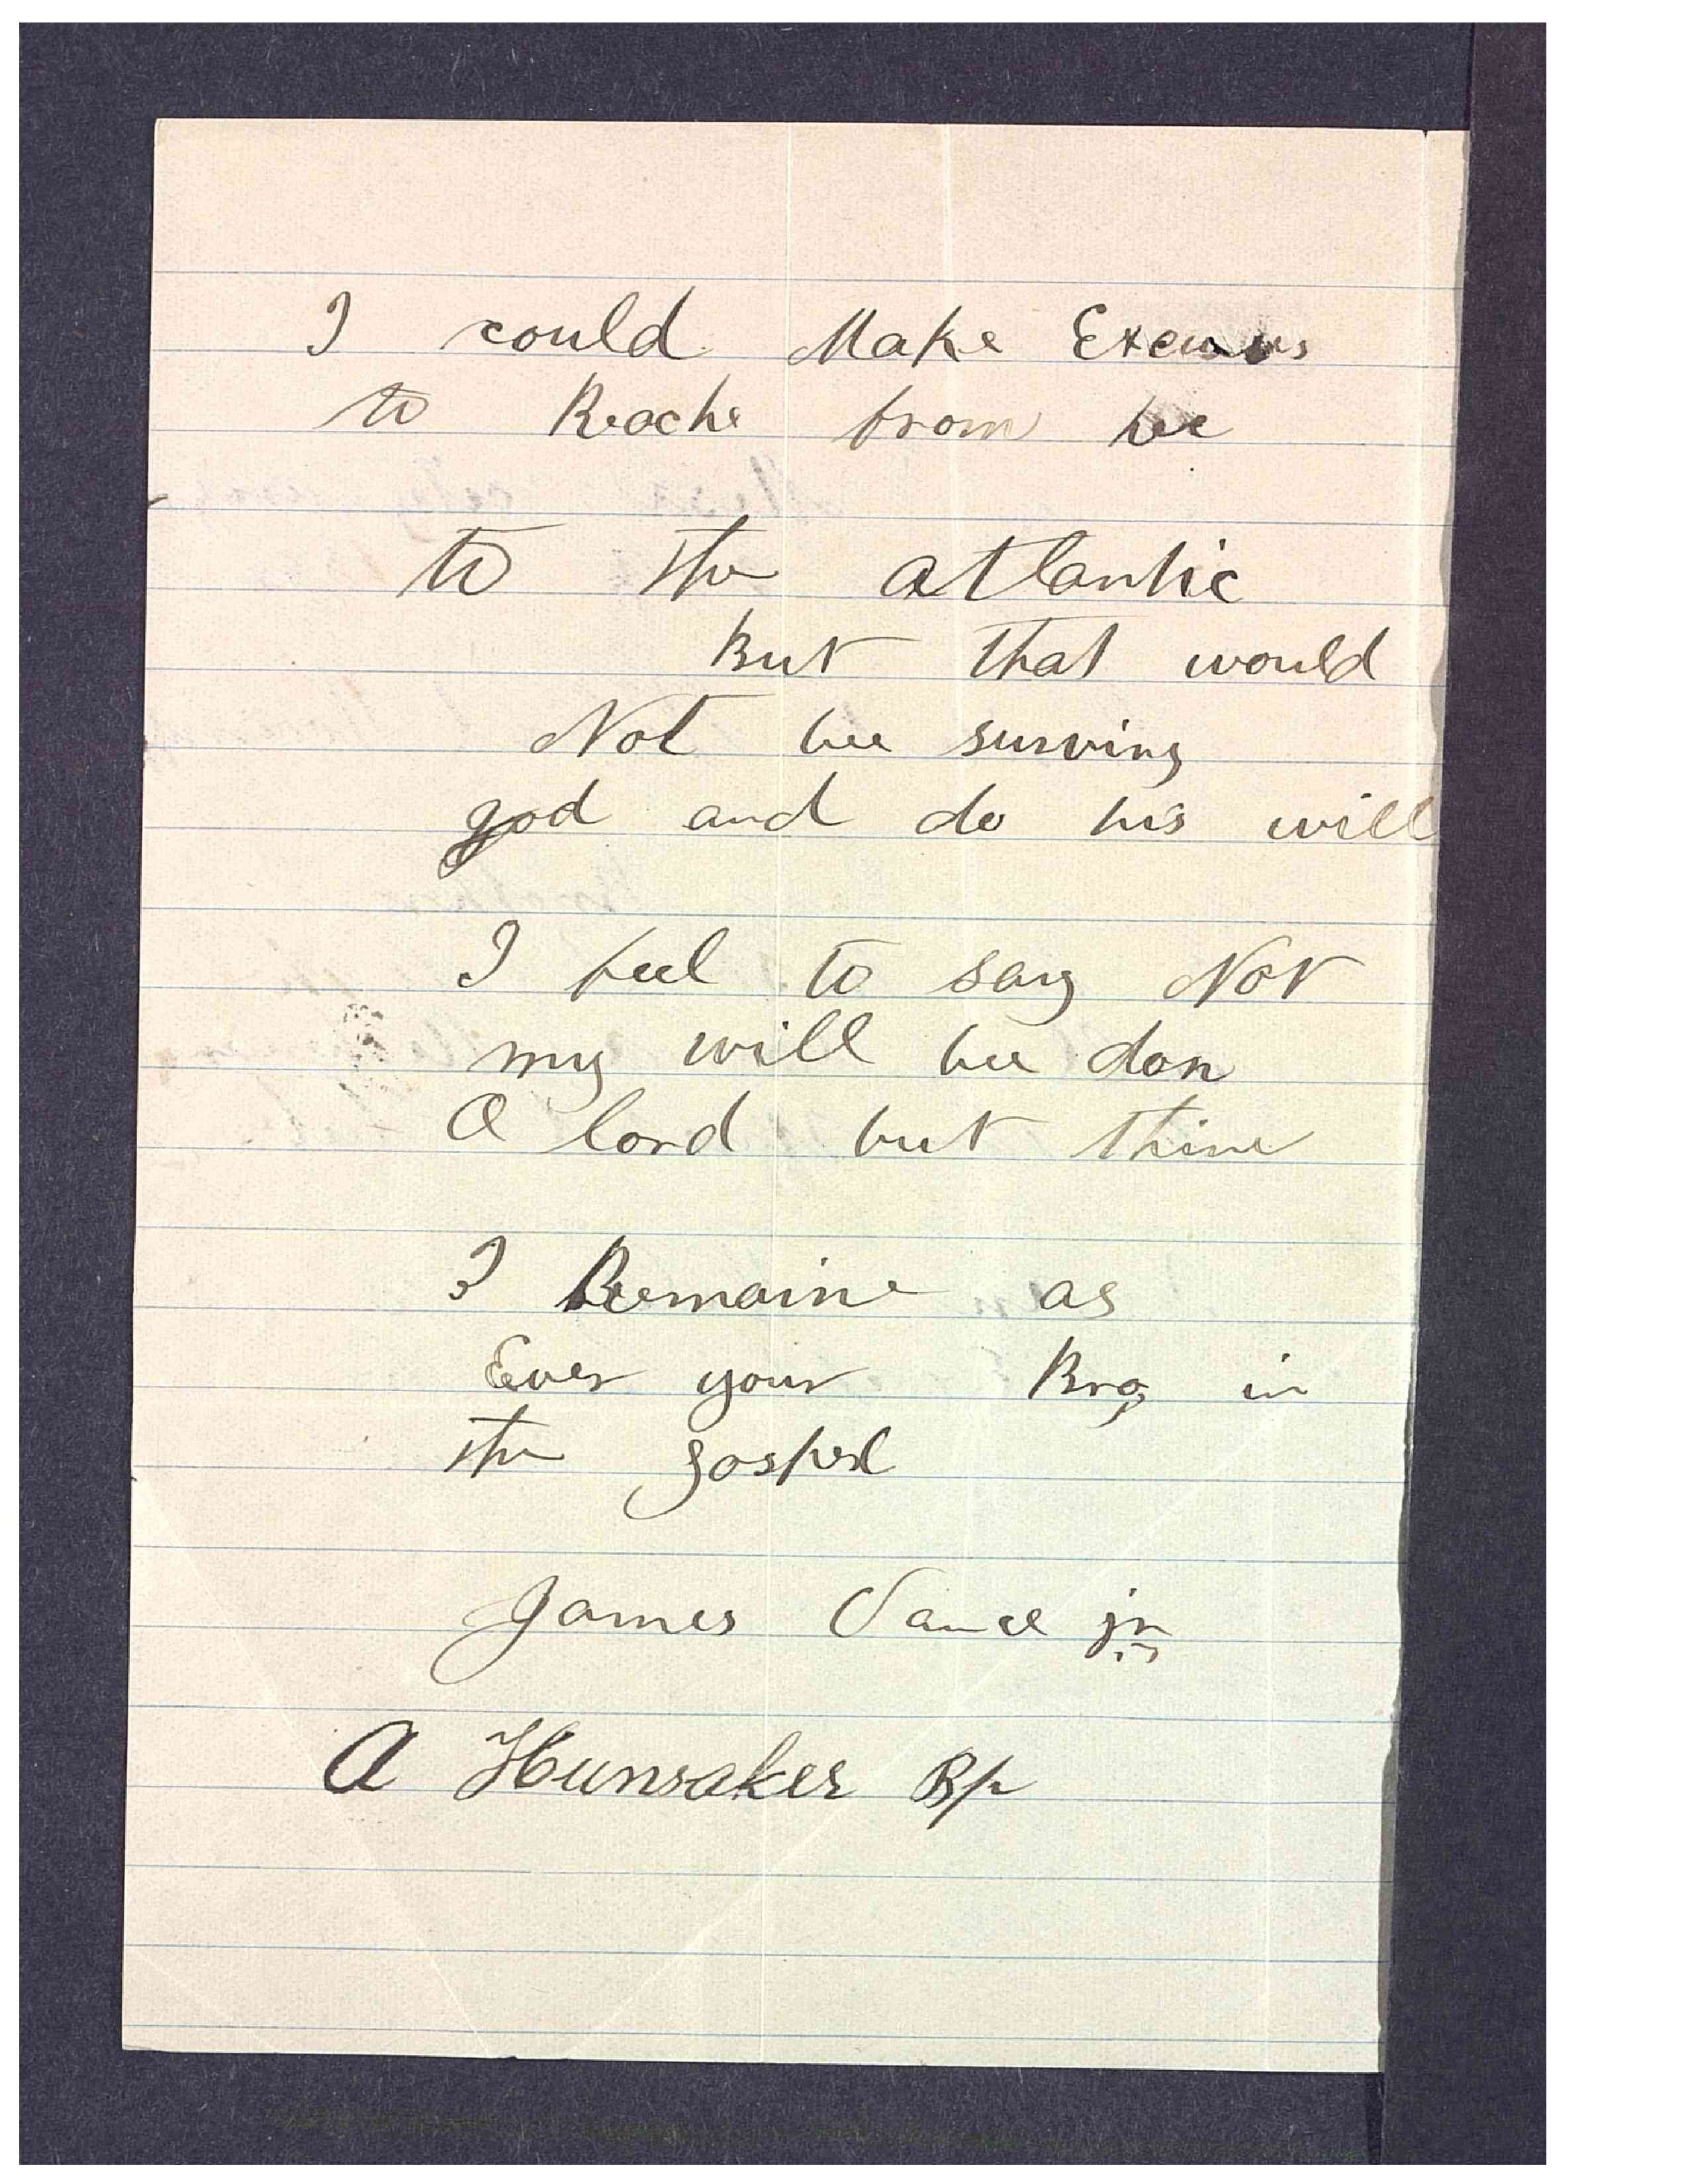 I could Make
to Reache from
to the atlantic
But that would
Not bee surving
god and do his will
I feel to say Not
my will bee don
O lord but thine
I Remaine as
Ever your Bro, in
the gospel
James Vance jr
A Hunsaker Bp